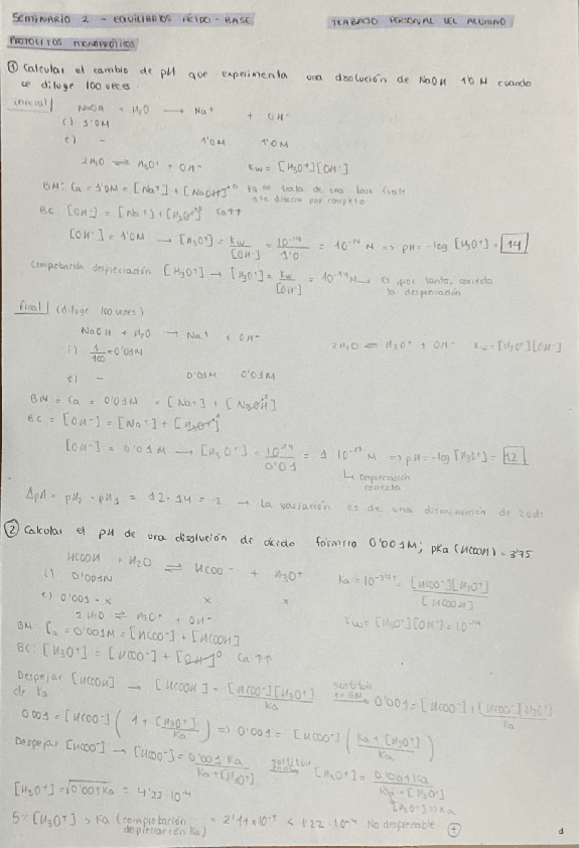 SEMINARIO 2 - EQUILIBRIOS ÁCIDO-BASE
TRABAJO PERSONAL DEL ALUMNO
PROTOLITOS MONOPRÓTICOS
① Calcular el cambio de pH que experimenta una disolución de NaOH 1'0 M cuando
se diluye 100 veces.
inicial|
NaOH + H₂O ⟶ Na⁺ + OH⁻
i) 1'0M
e) - 1'0M 1'0M
2H₂O ⇌ H₃O⁺ + OH⁻ Kw = [H₃O⁺][OH⁻]
BM: Ca = 1'0M = [Na⁺] + [NaOH]⁰ ya se trata de una base fuerte
que se disocia por completo
BC: [OH⁻] = [Na⁺] + [H₃O⁺]⁰ Ca↑↑
[OH⁻] = 1'0M ⟶ [H₃O⁺] = Kw/[OH⁻] = 10⁻¹⁴/1'0 = 10⁻¹⁴ M ⇒ pH = -log [H₃O⁺] = 14
Comprobación despreciación [H₃O⁺] → [H₃O⁺] = Kw/[OH⁻] = 10⁻¹⁴M → es, por tanto, correcta
la despreciación
final| (diluye 100 veces)
NaOH + H₂O → Na⁺ + OH⁻
2H₂O ⇌ H₃O⁺ + OH⁻ Kw = [H₃O⁺][OH⁻]
i) 1/100 = 0'01M
e) - 0'01M 0'01M
BM = Ca = 0'01M = [Na⁺] + [NaOH]⁰
BC = [OH⁻] = [Na⁺] + [H₃O⁺]⁰
[OH⁻] = 0'01M ⟶ [H₃O⁺] = 10⁻¹⁴/0'01 = 1·10⁻¹² M ⇒ pH = -log [H₃O⁺] = 12
↳ despreciación
correcta
ΔpH = pH₂ - pH₁ = 12 - 14 = -2 → La variación es de una disminución de 2 uds
② Calcular el pH de una disolución de ácido fórmico 0'001M; pKa (HCOOH) = 3'75
HCOOH + H₂O ⇌ HCOO⁻ + H₃O⁺
i) 0'001M
Ka = 10⁻³'⁷⁵ = [HCOO⁻][H₃O⁺]/[HCOOH]
e) 0'001 - x x x
2H₂O ⇌ H₃O⁺ + OH⁻ Kw = [H₃O⁺][OH⁻] = 10⁻¹⁴
BM: Ca = 0'001M = [HCOO⁻] + [HCOOH]
BC: [H₃O⁺] = [HCOO⁻] + [OH⁻]⁰ Ca↑↑
Despejar [HCOOH] ⟶ [HCOOH] = [HCOO⁻][H₃O⁺]/Ka sustituir en BM 0'001 = [HCOO⁻] + [HCOO⁻][H₃O⁺]/Ka
de Ka
0'001 = [HCOO⁻] (1 + [H₃O⁺]/Ka) ⇒ 0'001 = [HCOO⁻] (Ka + [H₃O⁺]/Ka)
Despejar [HCOO⁻] ⟶ [HCOO⁻] = 0'001 Ka/Ka + [H₃O⁺] sustituir [H₃O⁺] = 0'001Ka/Ka + [H₃O⁺]
[H₃O⁺] >> Ka
[H₃O⁺] = √0'001Ka = 4'22·10⁻⁴
5% [H₃O⁺] > Ka (comprobación = 2'11×10⁻⁵ < 1'22·10⁻⁴ No despreciable
despreciación Ka)